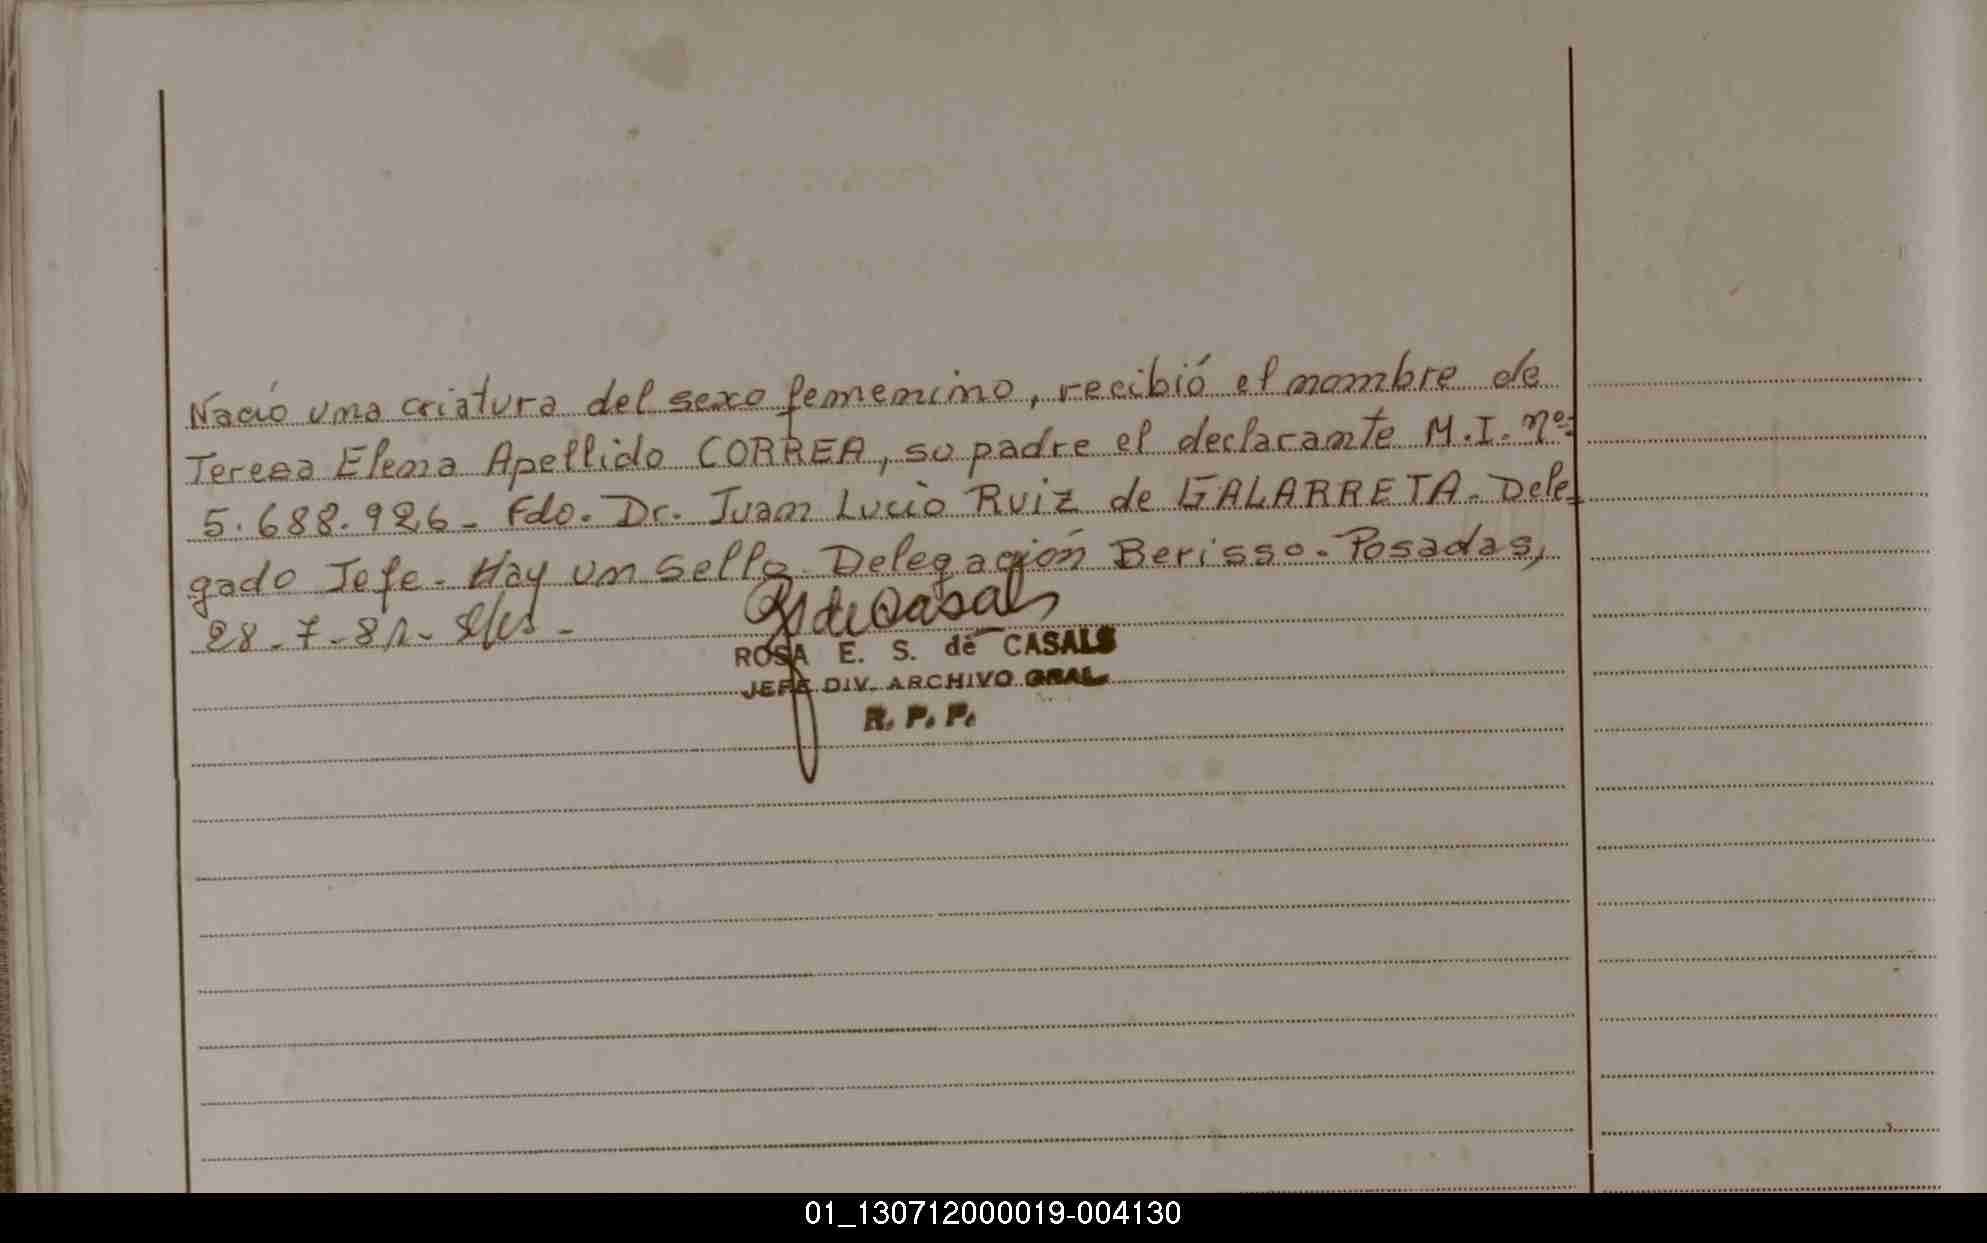 Nació una criatura del sexo femenino, recibió el nombre de
Teresa Elena Apellido CORREA, su padre el declarante M.I. nº:
5.688.926- Fdo. Dr. Juan Lucio Ruiz de GALARRETA- Dele-
gado Jefe- Hay un sello Delegación Berisso- Posadas,
28-7-81-
ROSA E. S. de CASALS
JEFE DIV. ARCHIVO GRAL.
R. P. P.
01_130712000019-004130